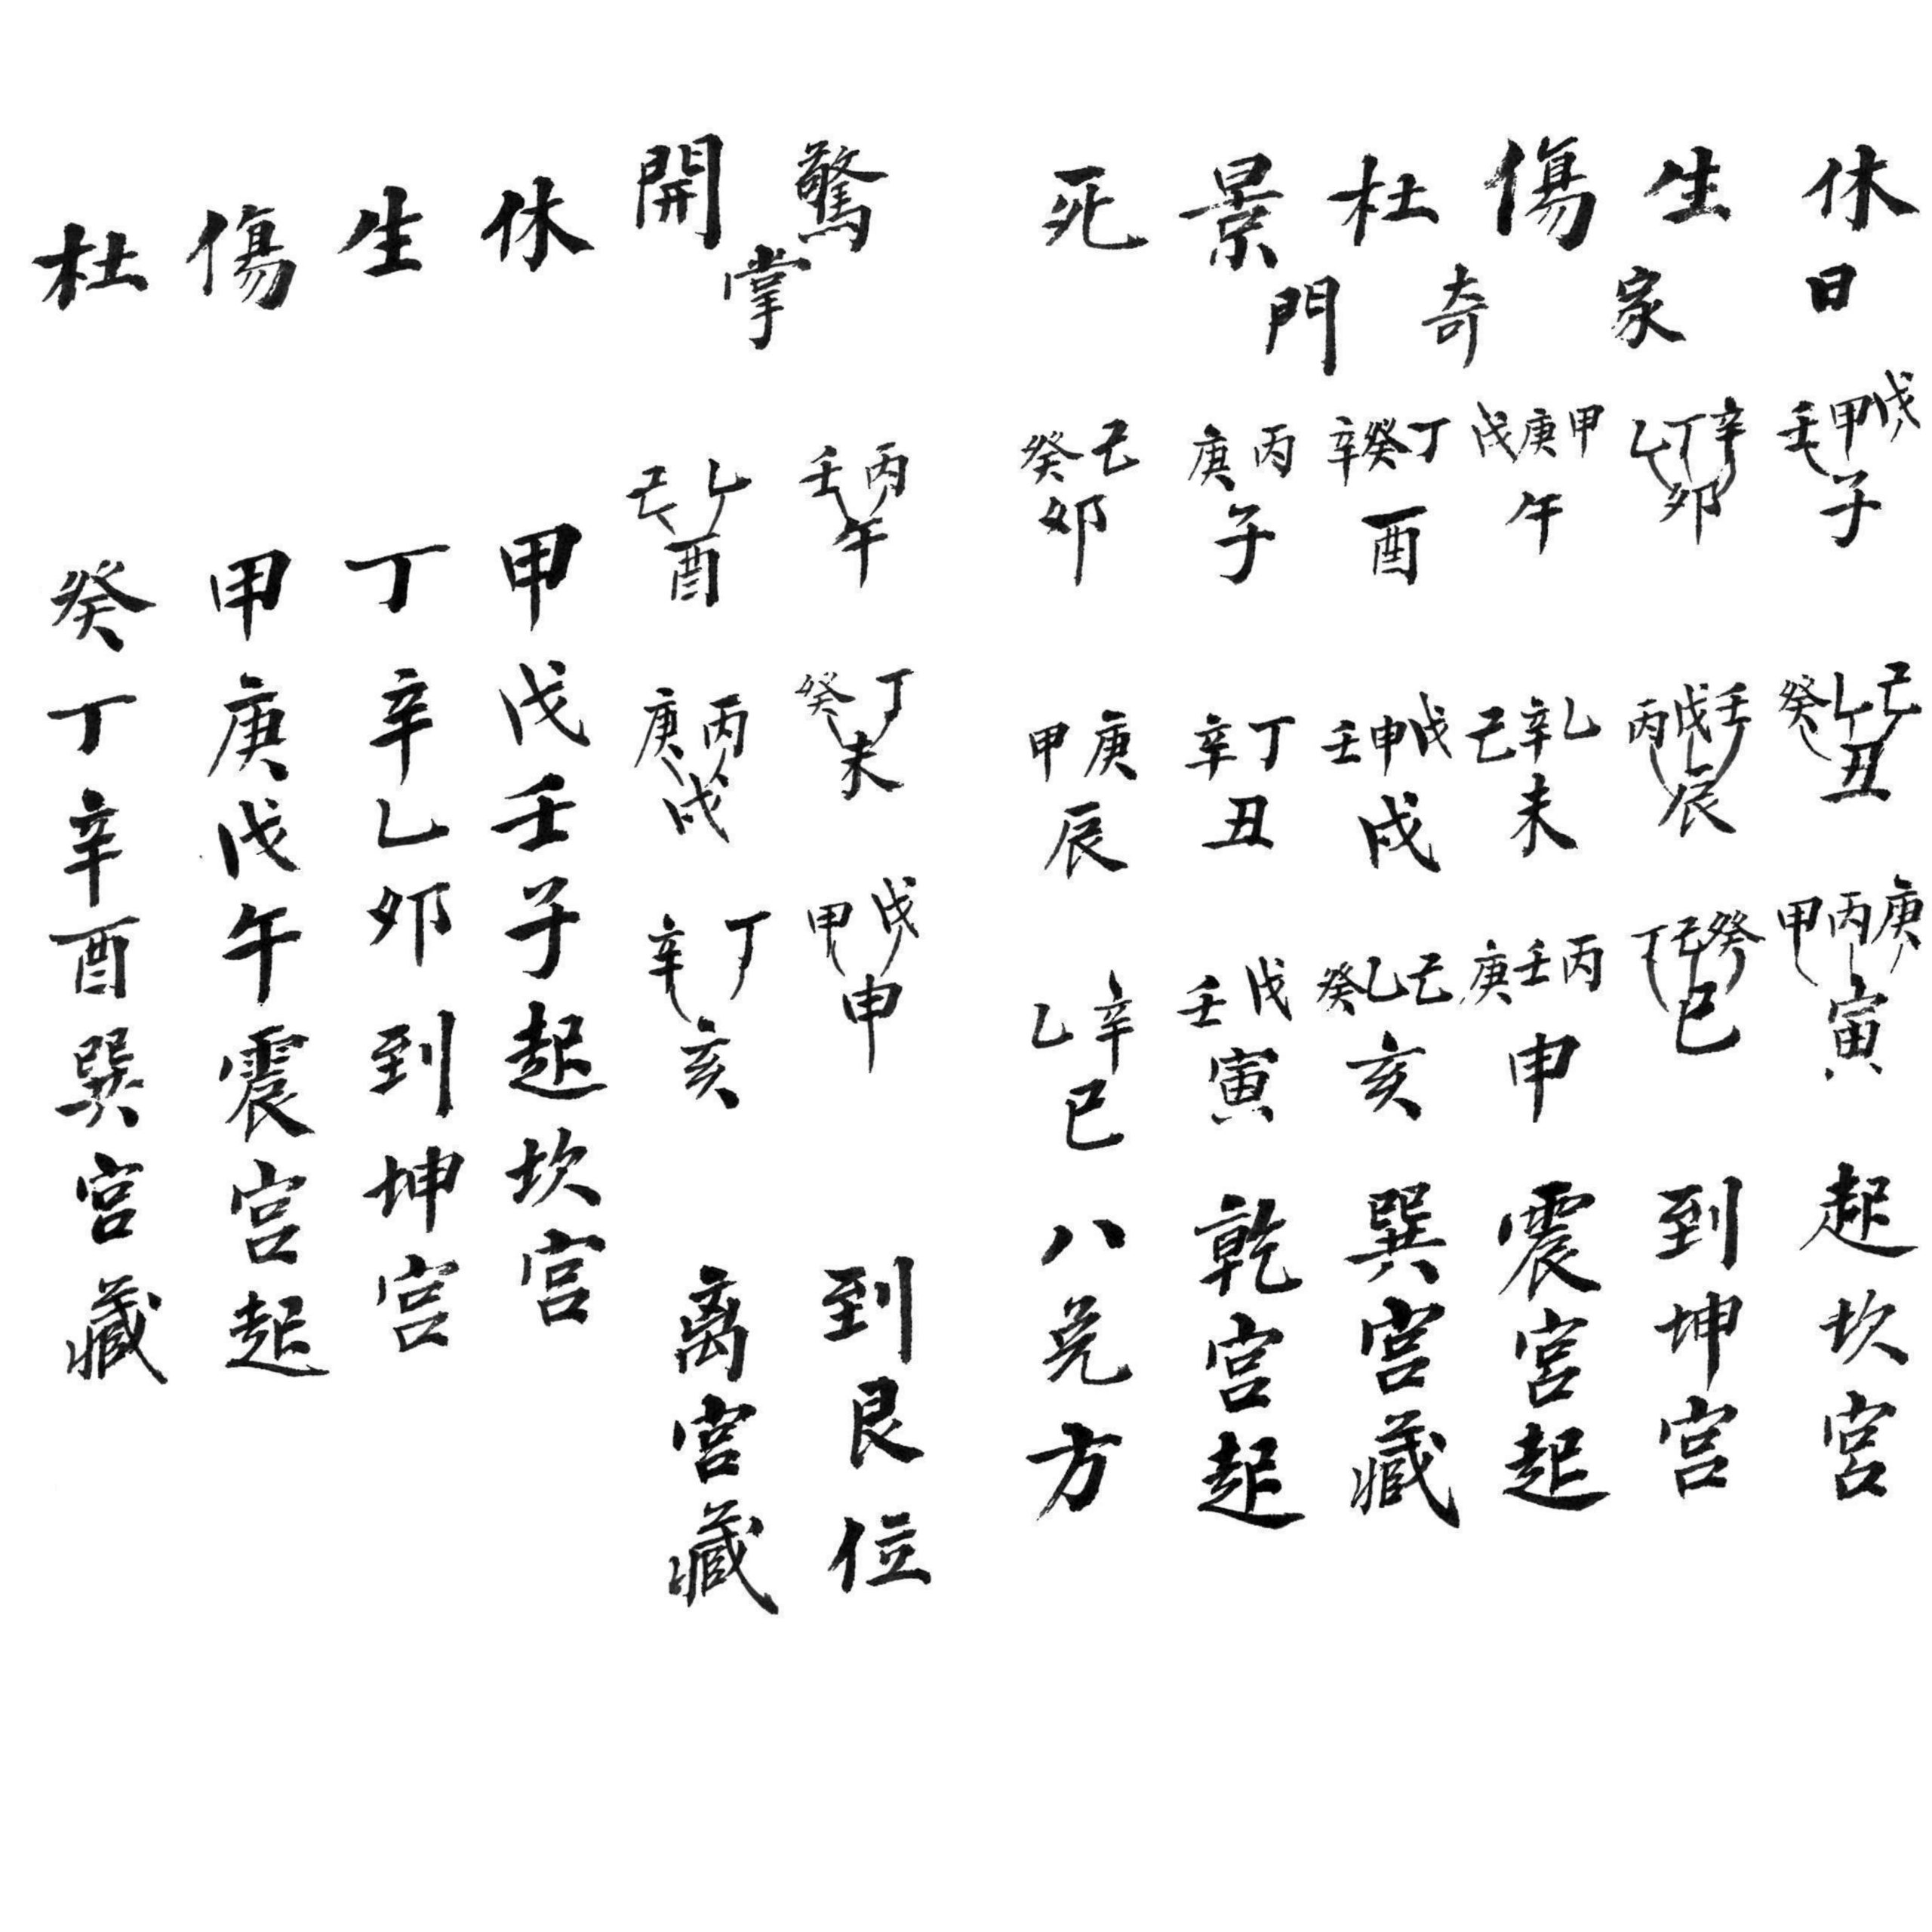 日家奇門掌
休 戊甲壬子 己乙癸丑 庚丙甲寅 起坎宮
生 辛丁乙卯 壬戊丙辰 癸己丁巳 到坤宮
傷 甲庚戊午 乙辛己未 丙壬庚申 震宮起
杜 丁癸辛酉 戊申壬戌 己乙癸亥 巽宮藏
景 丙庚子 丁辛丑 戊壬寅 乾宮起
死 己癸卯 庚甲辰 辛乙巳 八兑方
驚 丙壬午 丁癸未 戊甲申 到艮位
開 乙己酉 丙庚戌 丁辛亥 离宮藏
休 甲戊壬子起坎宮
生 丁辛乙卯到坤宮
傷 甲庚戊午震宮起
杜 癸丁辛酉巽宮藏